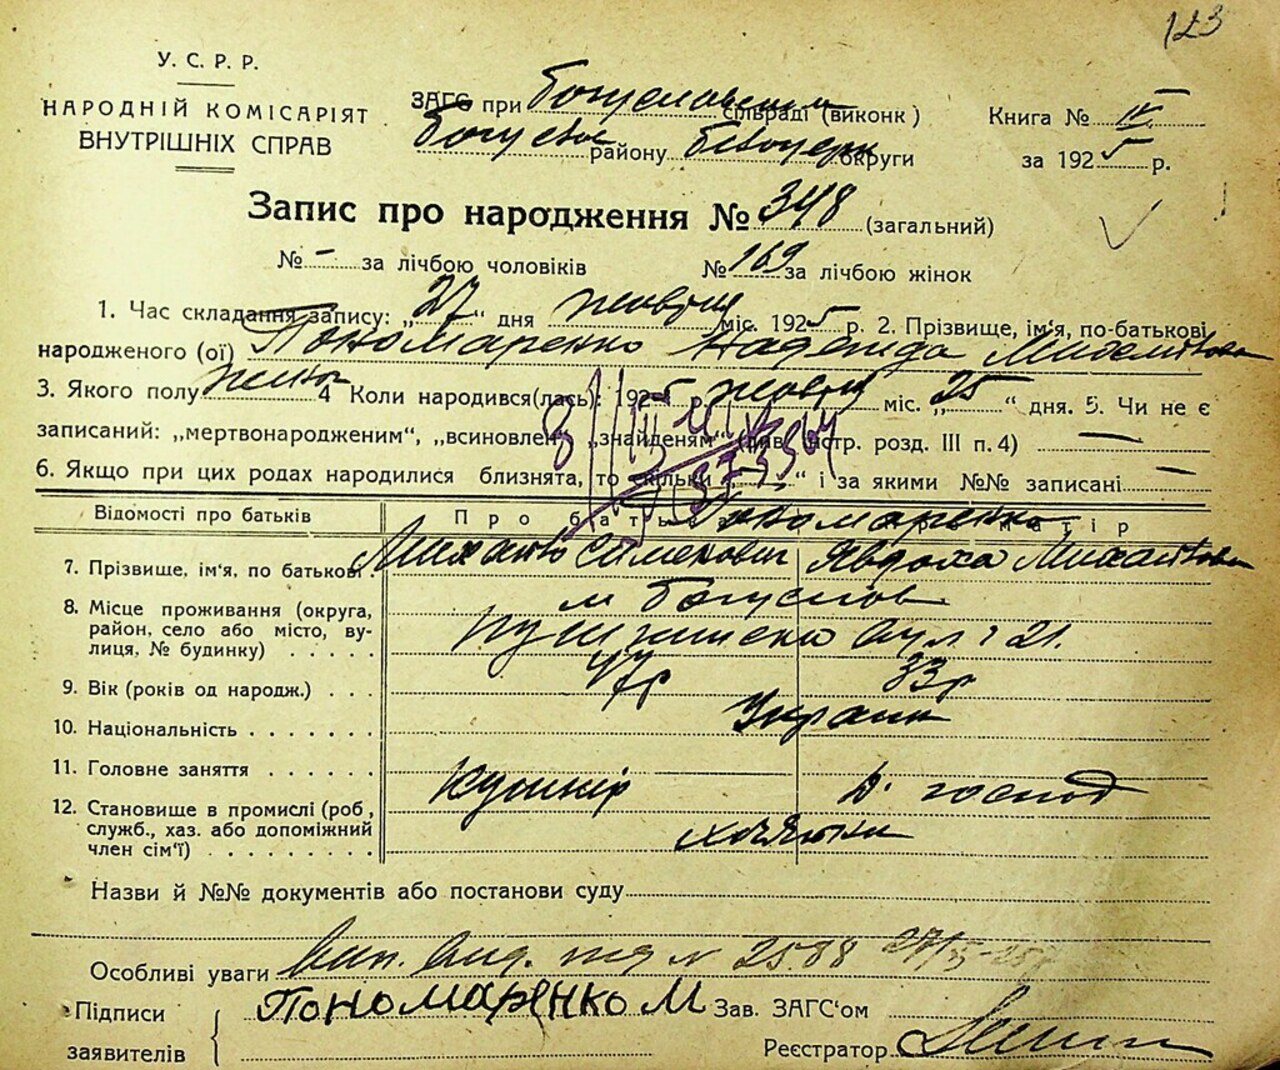 123
У. С. Р. Р.
НАРОДНІЙ КОМІСАРІЯТ
ВНУТРІШНІХ СПРАВ
ЗАГС при Богуславським сільраді (виконк)
Богуслав району Білоцерк округи
Книга № IV
за 1925 р.
Запис про народження № 348 (загальний)
№ - за лічбою чоловіків № 169 за лічбою жінок
1. Час складання запису: „27“ дня жовтня міс. 1925 р. 2. Прізвище, ім'я, по-батькові
народженого (ої) Пономаренко Надежда Михайловна
3. Якого полу жіноч 4 Коли народився(лась): 1925 р. жовтня міс. „25“ дня. 5. Чи не є
записаний: „мертвонародженим“, „всиновлен „знайденям“ (див. інстр. розд. III п. 4) —
6. Якщо при цих родах народилися близнята, то скільки „ “ і за якими №№ записані —
Відомості про батьків Про батька матір
Пономаренко
7. Прізвище, ім'я, по батькові. Михайло Семенович Явдоха Михайловна
8. Місце проживання (округа, м Богуслав
район, село або місто, ву-
лиця, № будинку) . . . . . вул 21.
9. Вік (років од народж.) . . . 47р 33р
10. Національність . . . . . . . Україн
11. Головне заняття . . . . . . Кушнір д. господ
12. Становище в промислі (роб,
служб., хаз. або допоміжний
член сім'ї) . . . . . . . . хазяїни
Назви й №№ документів або постанови суду
Особливі уваги вип. вид. № 2588
Підписи Пономаренко М Зав. ЗАГС'ом
заявителів Реєстратор